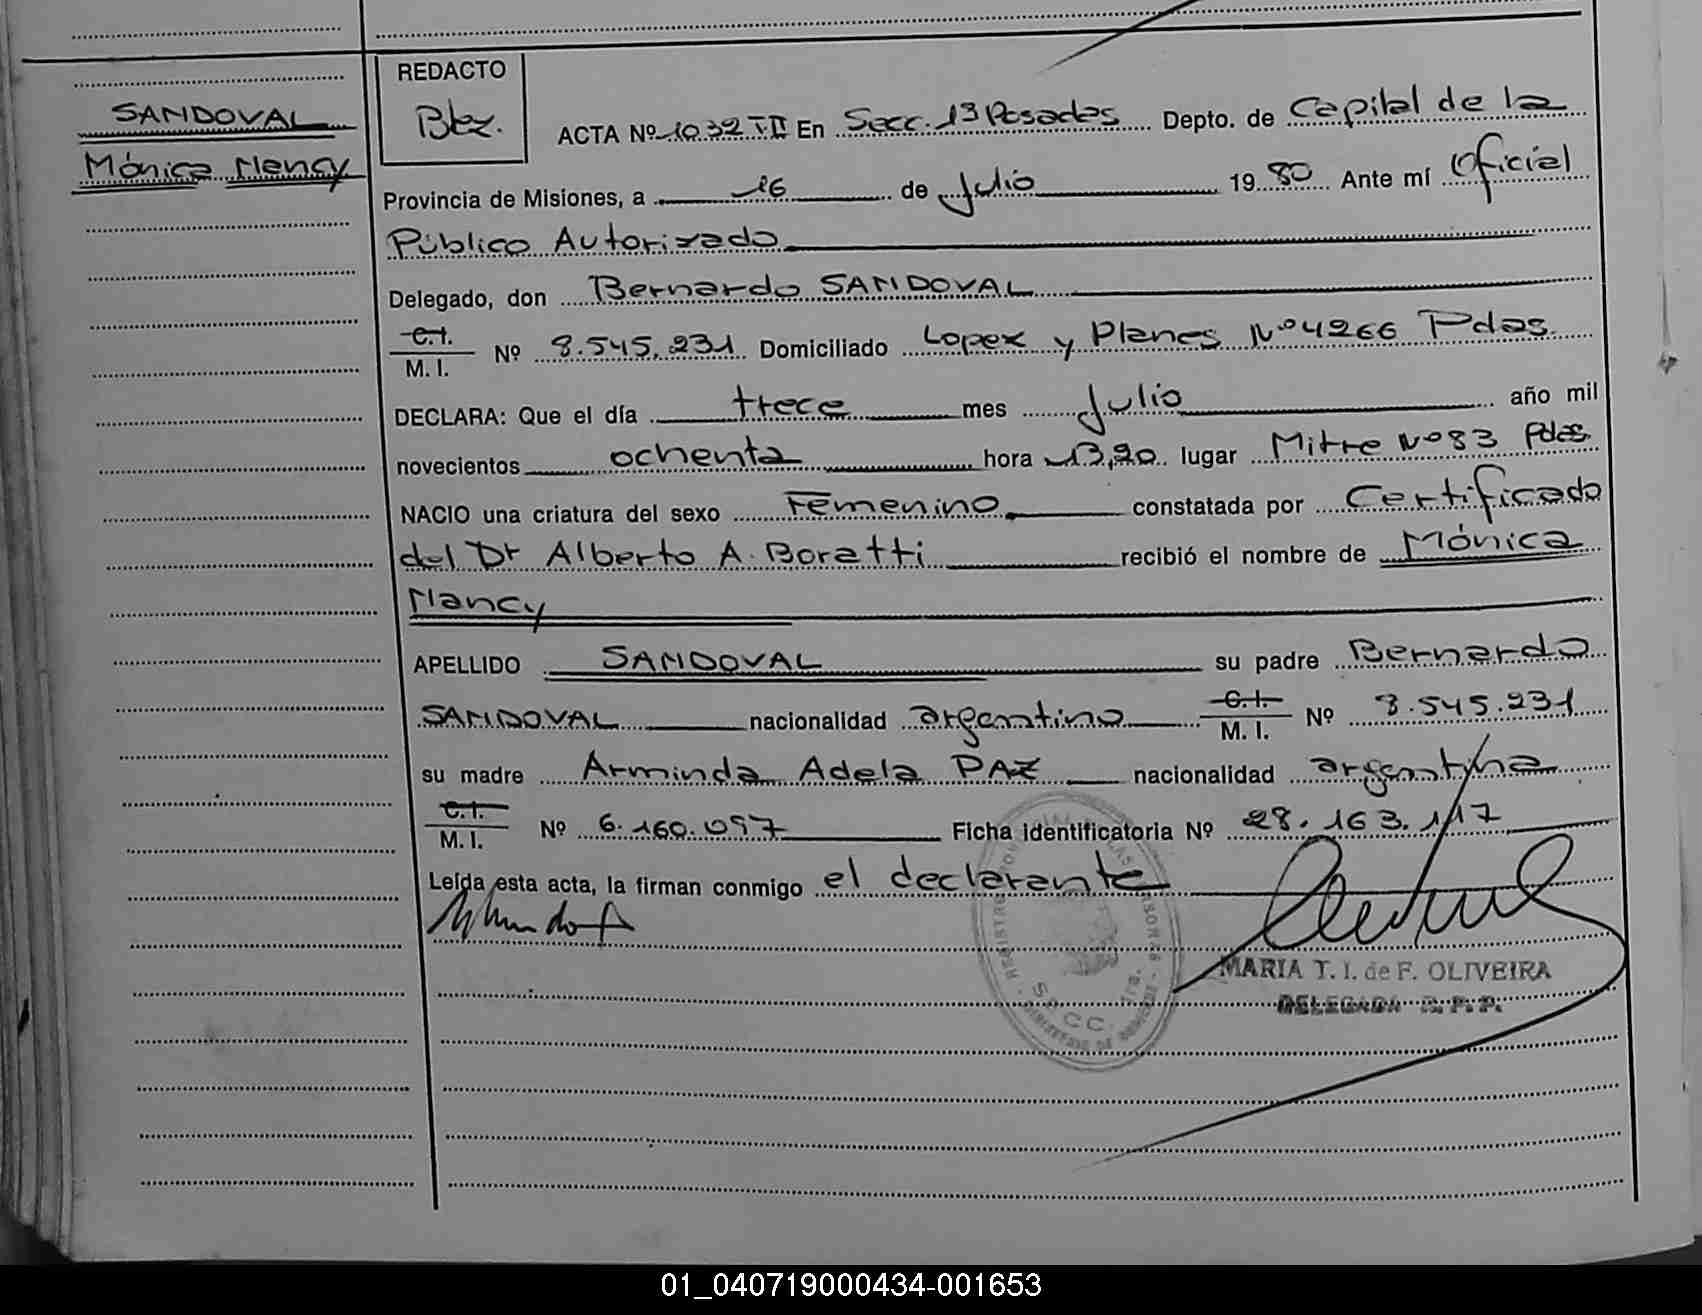 SANDOVAL
Mónica Nancy
REDACTO
Btez.
ACTA Nº 1032 TII En Secc. 1ª Posadas Depto. de Capital de la
Provincia de Misiones, a 16 de Julio 1980 Ante mí Oficial
Público Autorizado
Delegado, don Bernardo SANDOVAL
C.I. M. I. Nº 8.545.231 Domiciliado Lopez y Planes Nº 4266 Pdas.
DECLARA: Que el día trece mes Julio año mil
novecientos ochenta hora 13,20 lugar Mitre Nº 83 Pdas.
NACIO una criatura del sexo Femenino constatada por Certificado
del Dr Alberto A. Boratti recibió el nombre de Mónica
Nancy
APELLIDO SANDOVAL su padre Bernardo
SANDOVAL nacionalidad argentino C.I. M. I. Nº 8.545.231
su madre Arminda Adela PAZ nacionalidad argentina
C.I. M. I. Nº 6.160.097 Ficha identificatoria Nº 28.163.117
Leída esta acta, la firman conmigo el declarante
MARIA T. I. de F. OLIVEIRA
DELEGADA R. P. P.
SECC.
01_040719000434-001653